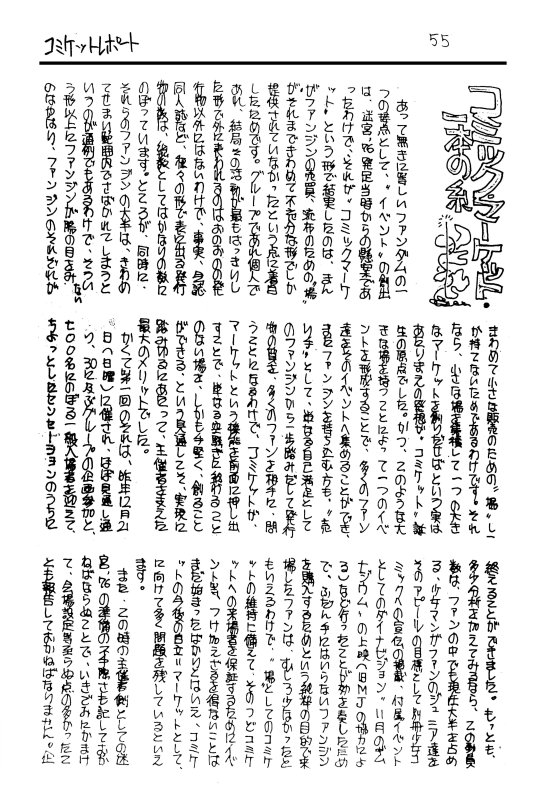 コミケットレポート
55
コミック・マーケット・
あって無きに等しいファンダムの一
つの拠点として、"イベント"の創出
は、迷宮'76発足当時からの懸案であ
ったわけで、それが"コミックマーケ
ット"という形で結実したのは、まん
がファンジンの売買、流布のための"場"
がそれまできわめて不充分な形でしか
提供されていなかったという点に着目
したためです。グループであれ個人で
あれ、結局その活動が最もはっきりし
た形で外にあらわれるのはおのおのの発
行物以外にはないわけで、事実、会誌
同人誌など、様々の形で表に出る発行
物の数は、総数としてはかなりの数に
のぼっています。ところが、同時に
それらのファンジンの大半は、きわめ
てせまい範囲内でさばかれてしまうと
いうのが通例でもあるわけで、そうい
う形以上にファンジンが陽の目をみない
のなかばり、ファンジンのそれぞれが
きわめて小さな販売のための"場"し
か持てないためであるわけです。それ
なら、小さな場を集積して一つの大き
なマーケットを創りだせばという実は
あたりまえの発想が"コミケット"誕
生の原点でした。かつ、このような大
きな場を持つことによって一つのイベ
ントを形成することで、多くのファン
達をそのイベントへ集めることができ、
またファンジンを持ち込む方も、"売
り手"として、単なる自己満足として
のファンジンから一歩踏みだして発行
物の質を、多くのファンを相手に、問
うことになるわけで、コミケットが、
マーケットという機能を前面に押し出
すことで、単なる交歓に終わること
のない場を、しかも手堅く、創ること
ができる、という見通しこそ、実現に
踏みきるにあたって、主催者が考えた
最大のメリットでした。
かくて第一回のそれは、昨年12月21
日(日曜)に催され、ほぼ見通し通
り、30になんなんとするグループの企画参加と、
700名にのぼる一般入場者を迎えて、
ちょっとしたセンセーションのうちに
終えることができました。もっとも、
多少分析をくわえてみるなら、この動員
数は、ファンの中でも現在大半を占め
る、少女マンガファンのジュニア達を
そのアピールの目標として別冊少女コ
ミックへの宣伝の掲載、付属イベント
としての
で、ふだん手にはいらないファンジン
を購入するためという純粋の目的で来
場したファンは、むしろ少なかったと
もいえるわけで、"場"としてのコミケ
ットの維持に備えて、そのつどコミケ
ットへの来場者を保証するためにイベ
ントをつけたさざるを得ないことは
まだ始まったばかりとはいえ、コミケ
ットの今後の自立"マーケット"として、
に向けて多くの問題を残しているといえ
ます。
また、この時の主催者側としての迷
宮'76の準備の不手際さも記しておか
ねばならぬことで、いきごみにかまけ
て、会場設定等至らぬ点の多かったこ
とも報告しておかねばなりません。(企